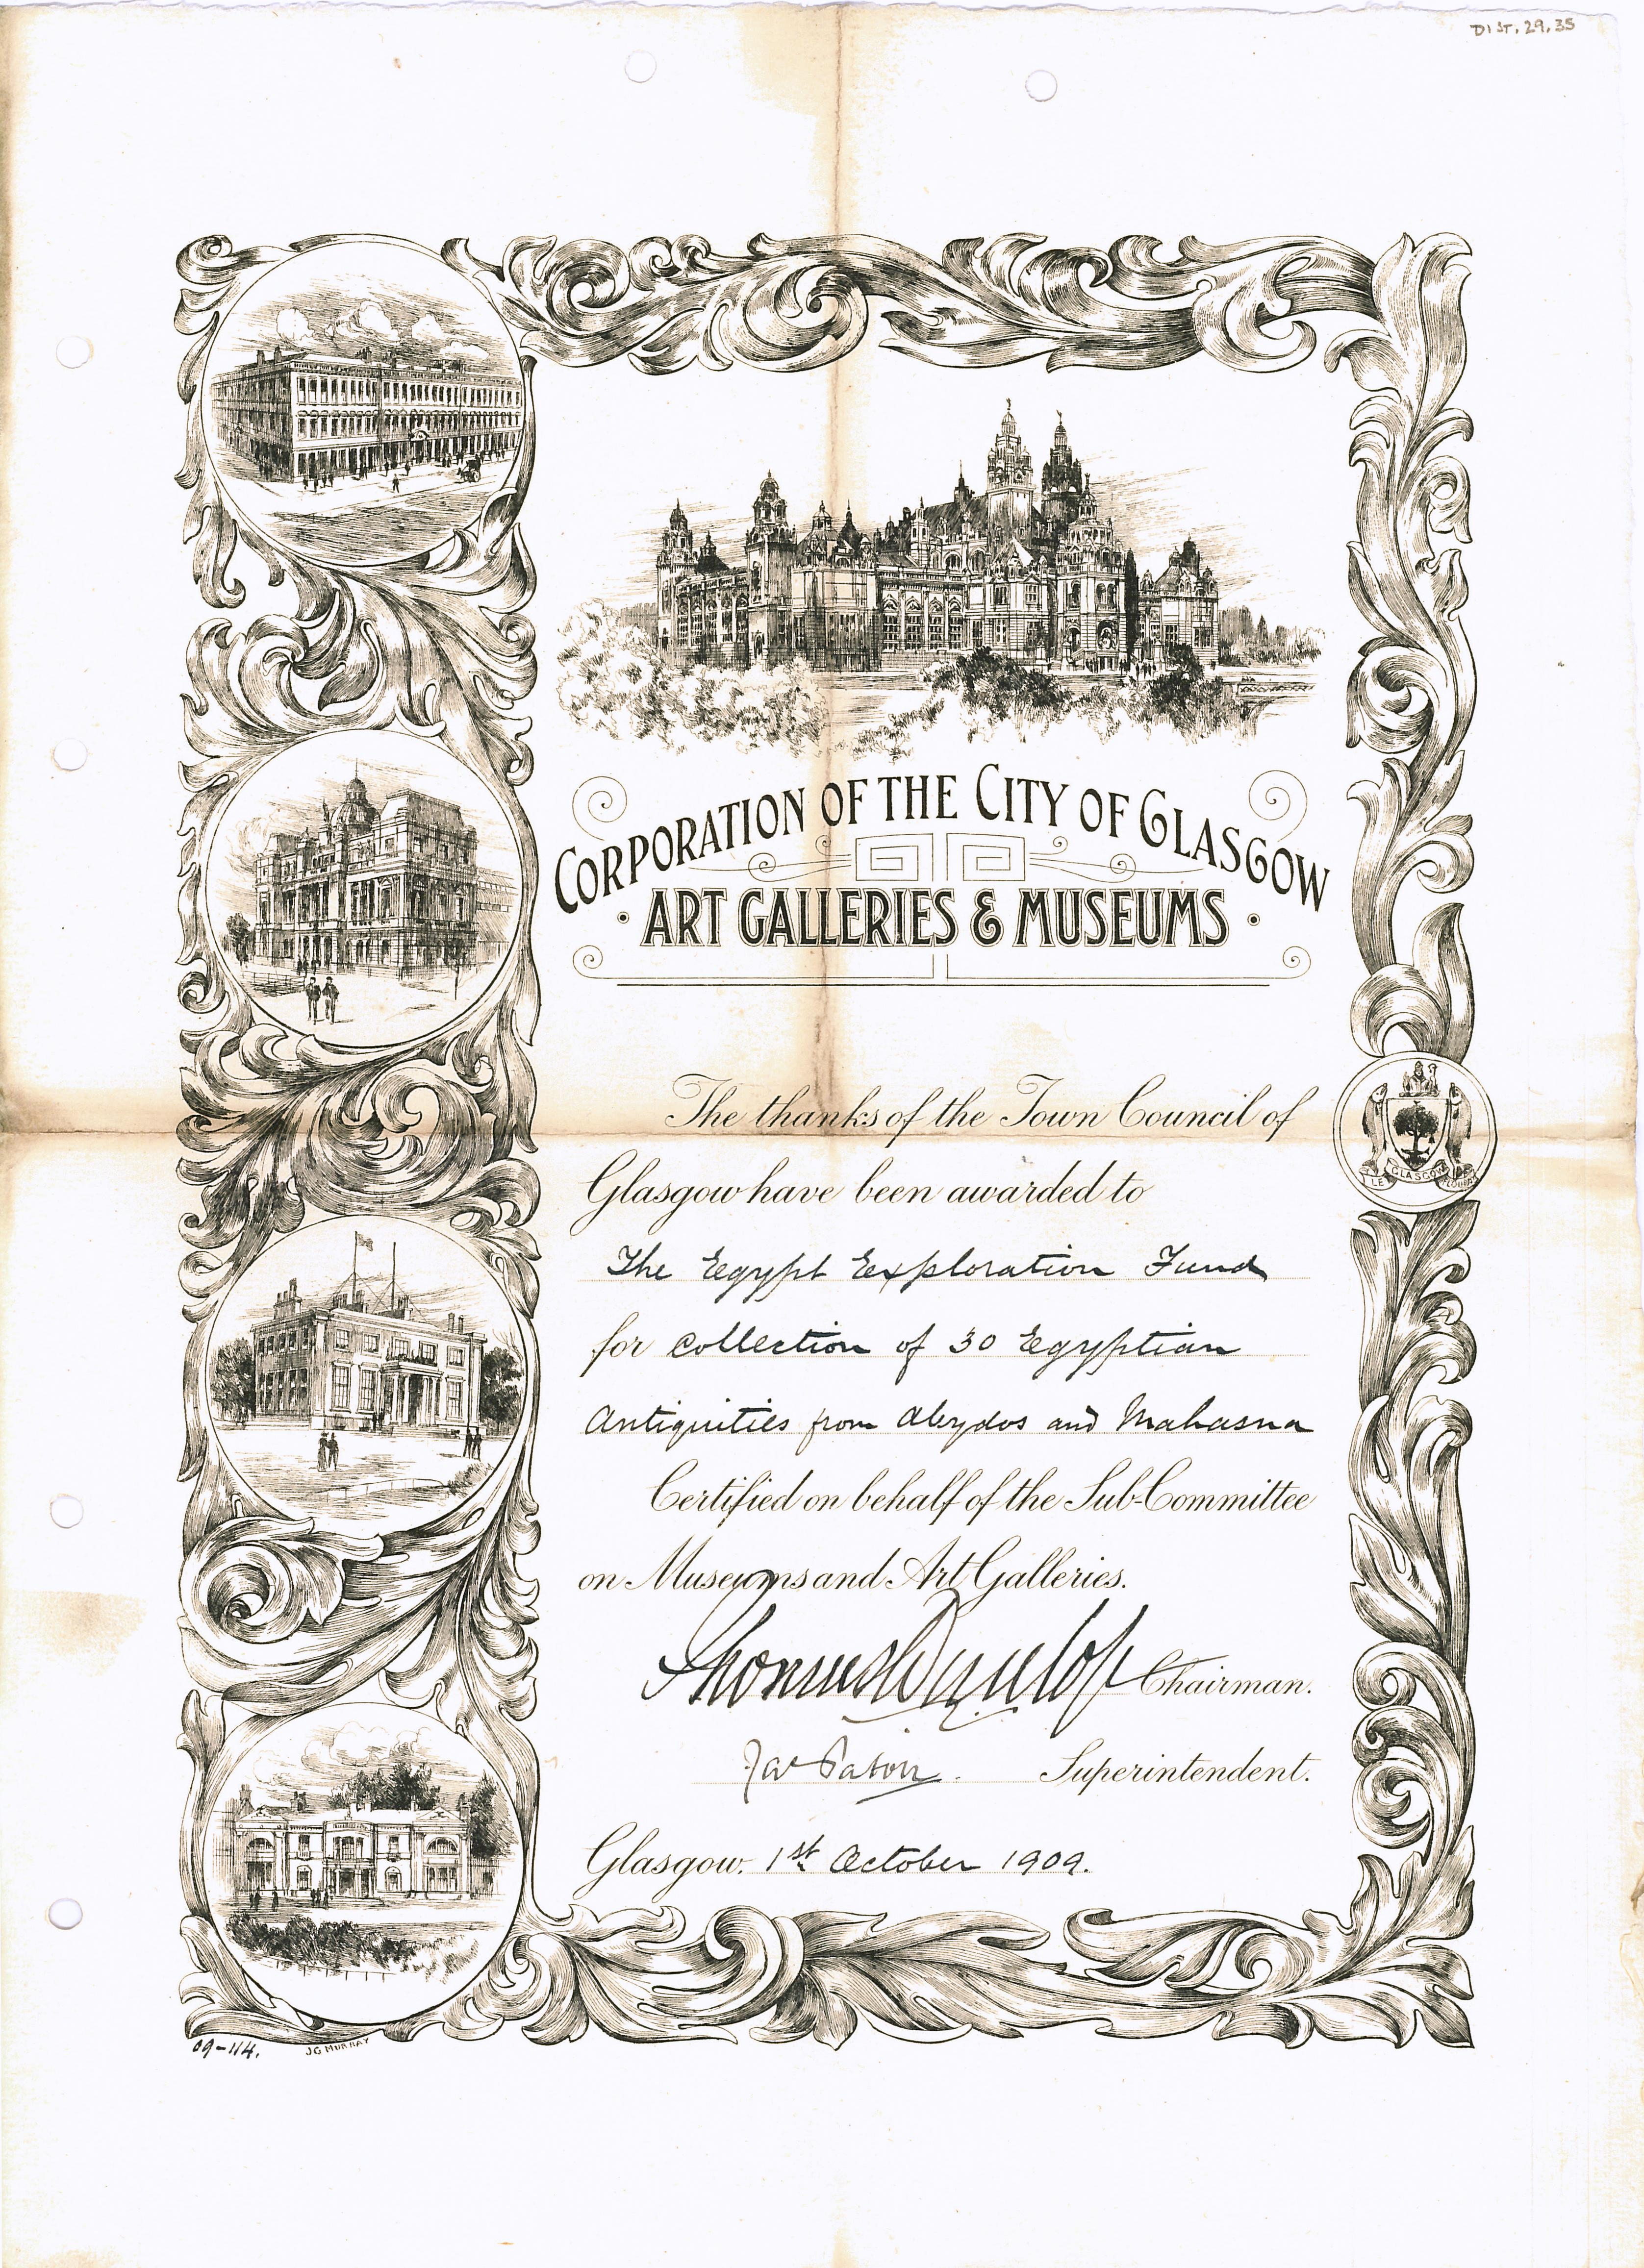 DIST. 29.35
CORPORATION OF THE CITY OF GLASGOW
· ART GALLERIES & MUSEUMS ·
The thanks of the Town Council of
Glasgow have been awarded to
The Egypt Exploration Fund
for collection of 30 Egyptian
Antiquities from Abydos and Mahasna
Certified on behalf of the Sub-Committee
on Museums and Art Galleries.
Thomas Dunlop Chairman.
Jas Paton. Superintendent.
Glasgow. 1st October 1909.
LET GLASGOW FLOURISH
09-114.
J G MURRAY